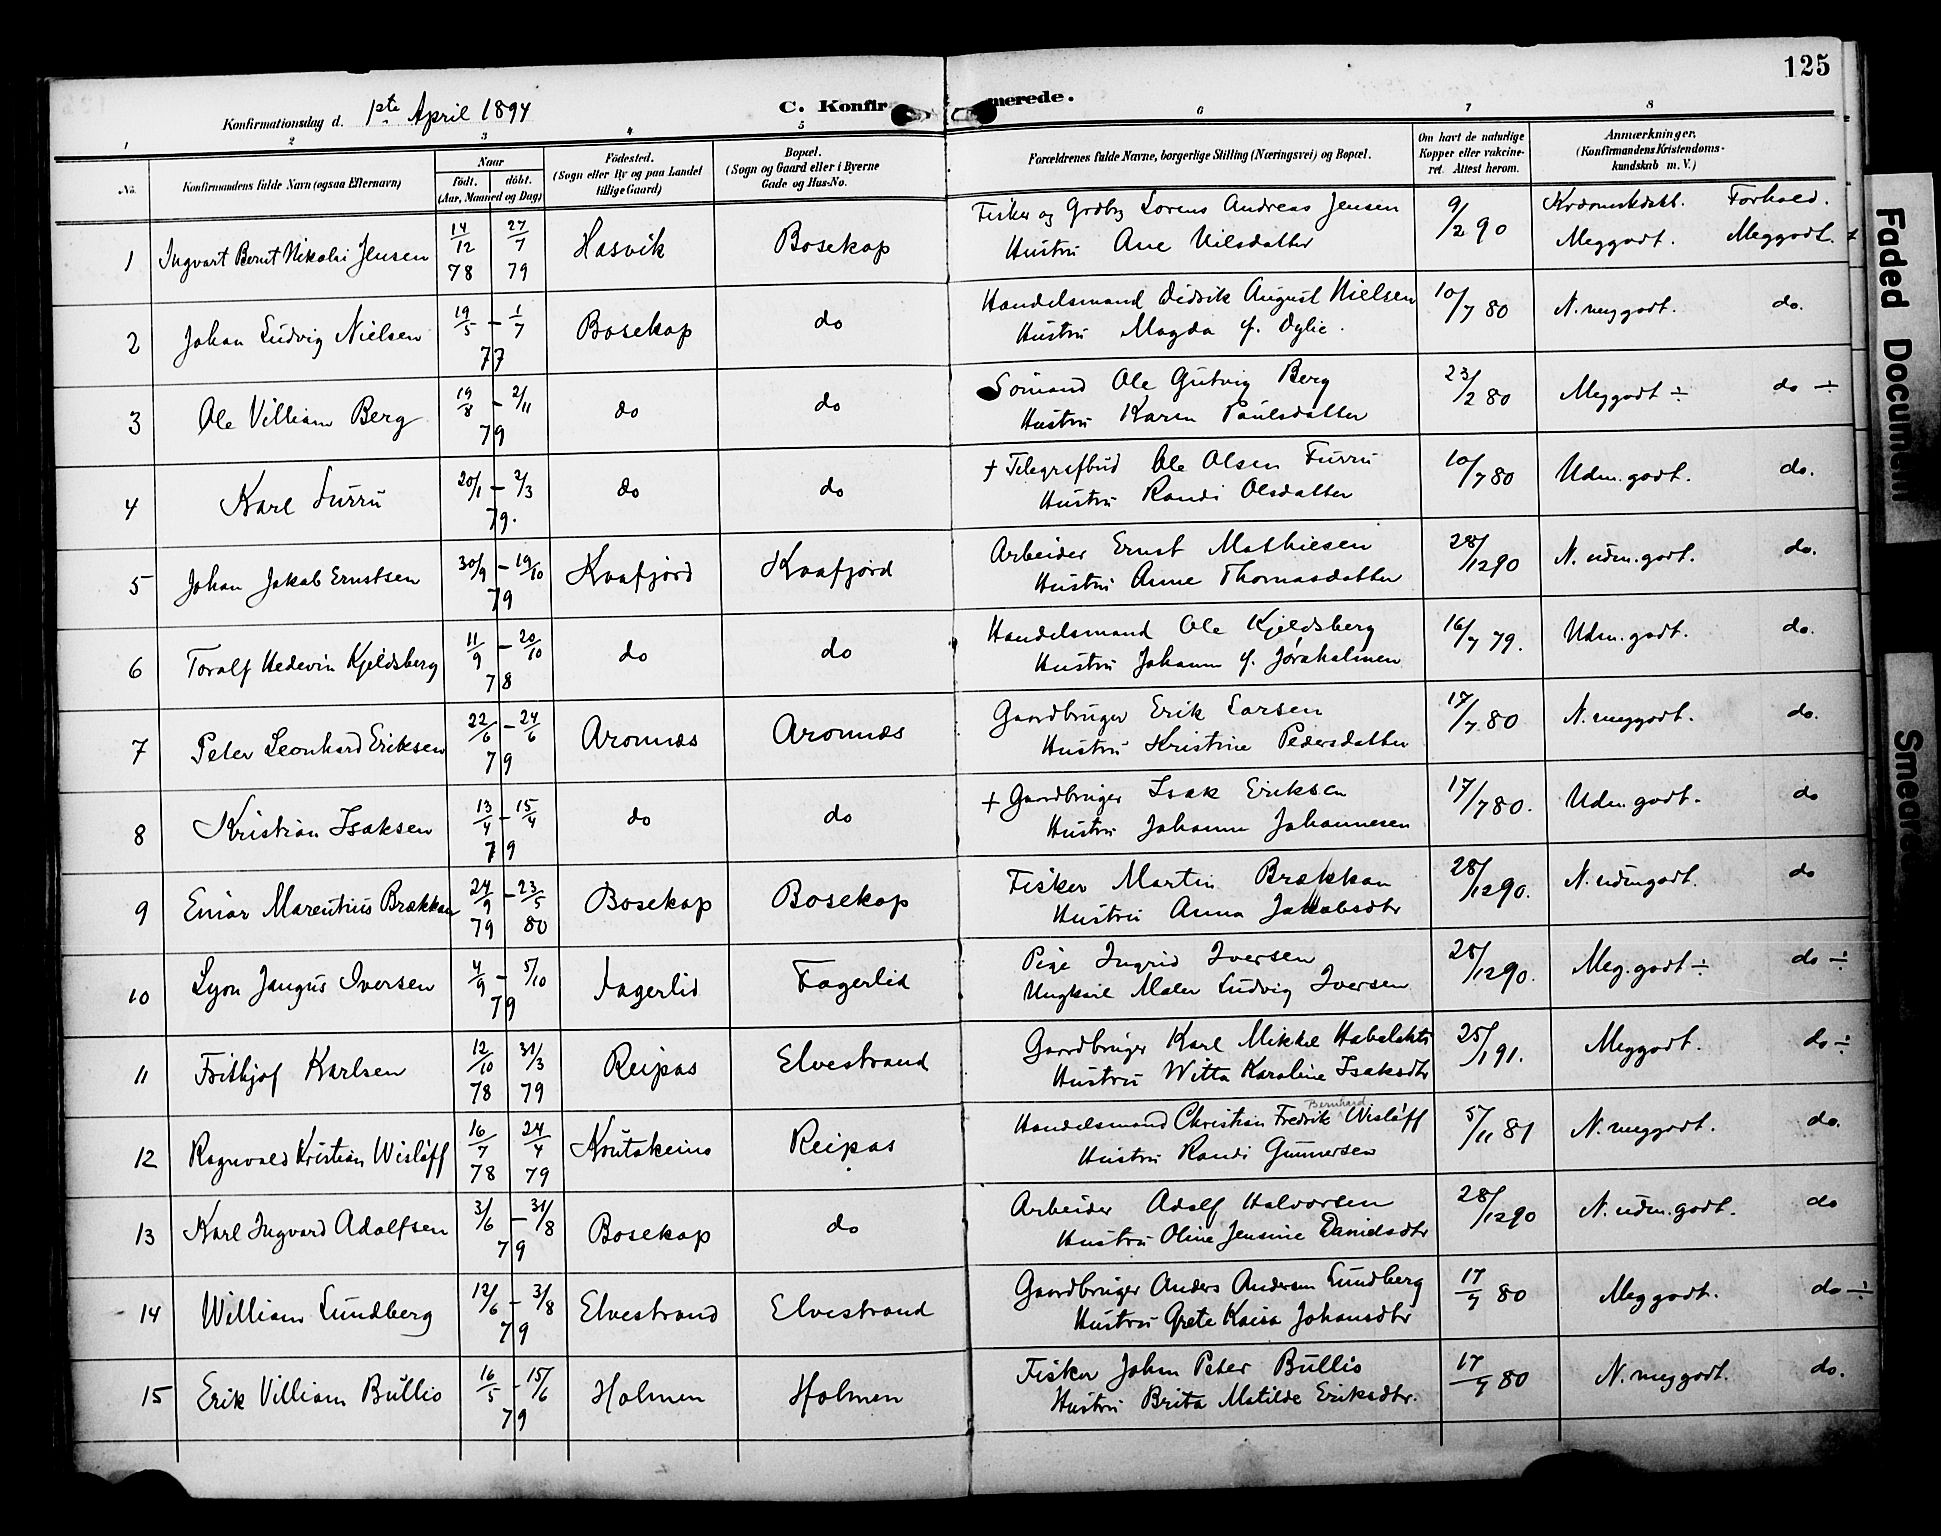 125
Konfirmationsdag d. 1ste April 1894
C. Konfirmerede.
1 2 3 4 5 6 7 8
No.
Konfirmandens fulde Navn (ogsaa Efternavn)
Naar
födt. döbt.
(Aar, Maaned og Dag)
Födested.
(Sogn eller By og paa Landet
tillige Gaard)
Bopæl.
(Sogn og Gaard eller i Byerne
Gade og Hus-No.
Forældrenes fulde Navne, borgerlige Stilling (Næringsvei) og Bopæl.
Om havt de naturlige
Kopper eller vakcine-
ret. Attest herom.
Anmærkninger.
(Konfirmandens Kristendoms-
kundskab m. V.)
Forhold.
1 Ingvart Bernt Nikolai Jensen 14/12 78 27/7 79 Hasvik Bosekop
Fisker og Grdbg Lorens Andreas Jensen
Hustru Ane Nilsdatter
9/2 90 Meggodt. Meggodt.
2 Johan Ludvig Nielsen 19/5 – 1/7 77 Bosekop do
Handelsmand Didrik August Nielsen
Hustru Magda f.
10/7 80 N. meggodt. do.
3 Ole Villiam Berg 19/8 – 2/11 79 do do
Sömand Ole Gutvig Berg
Hustru Karen Paulsdatter
23/2 80 Meggodt ÷ do ÷
4 Karl Furru 20/1 – 2/3 79. do do
+ Telegrafbud Ole Olsen Furru
Hustru Randi Olsdatter
10/7 80 Udm. godt. do.
5 Johan Jakob Ernstsen 30/9 – 19/10 79 Kaafjord Kaafjord
Arbeider Ernst Mathiesen
Hustru Anne Thomasdatter
28/12 90 N. udm. godt. do.
6 Toralf Hedevin Kjeldsberg 11/9 – 20/10 78 do do
Handelsmand Ole Kjeldsberg
Hustru Johanne f. Jøraholmen
16/7 79. Udm. godt. do.
7 Peter Leonhard Eriksen 22/6 – 24/6 79 Aronnæs Aronnæs
Gaardbruger Erik Larsen
Hustru Kristine Pedersdatter
17/7 80 N. meggodt. do.
8 Kristian Isaksen 13/4 – 15/4 79 do do
+ Gaardbruger Isak Eriksen
Hustru Johanne Johannesen
17/7 80. Udm. godt. do
9 Einar Marentius Brækkan 24/9 79 – 23/5 80 Bosekop Bosekop
Fisker Martin Brækkan
Hustru Anna Jakobsdtr
28/12 90. N. udmgodt. do
10 Lyon Jangus Iversen 4/9 – 5/10 79 Fagerlid Fagerlid
Pige Ingrid Iversen
Ungkarl Maler Ludvig Iversen
28/12 90. Meg. godt ÷ do ÷
11 Frithjof Karlsen 12/10 78 31/3 79 Reipas Elvestrand
Gaardbruger Karl Mikkel
Hustru Witta Karoline Isaksdtr
25/1 91. Meggodt. do ÷
12 Ragnvald Kristian Wisløff 16/7 78 24/4 79 Koutokeino Reipas
Handelsmand Christian Fredrik Bernhard Wisløff
Hustru Randi Gunnersen
5/11 81 N. meggodt. do.
13 Karl Ingvard Adolfsen 3/6 – 31/8 79 Bosekop do
Arbeider Adolf Halvorsen
Hustru Oline Jensine Danielsdtr
28/12 90 N. udm. godt. do
14 William Lundberg 12/6 – 3/8 79 Elvestrand Elvestrand
Gaardbruger Anders Andersen Lundberg
Hustru Grete Kaisa Johansdtr
17/7 80 Meggodt. do ÷
15 Erik Villiam Bullio 16/5 – 15/6 79 Holmen Holmen
Fisker Johan Peter Bullio
Hustru Brita Matilde Eriksdtr.
17/7 80 N. meggodt. do.
Faded Document
Smeared